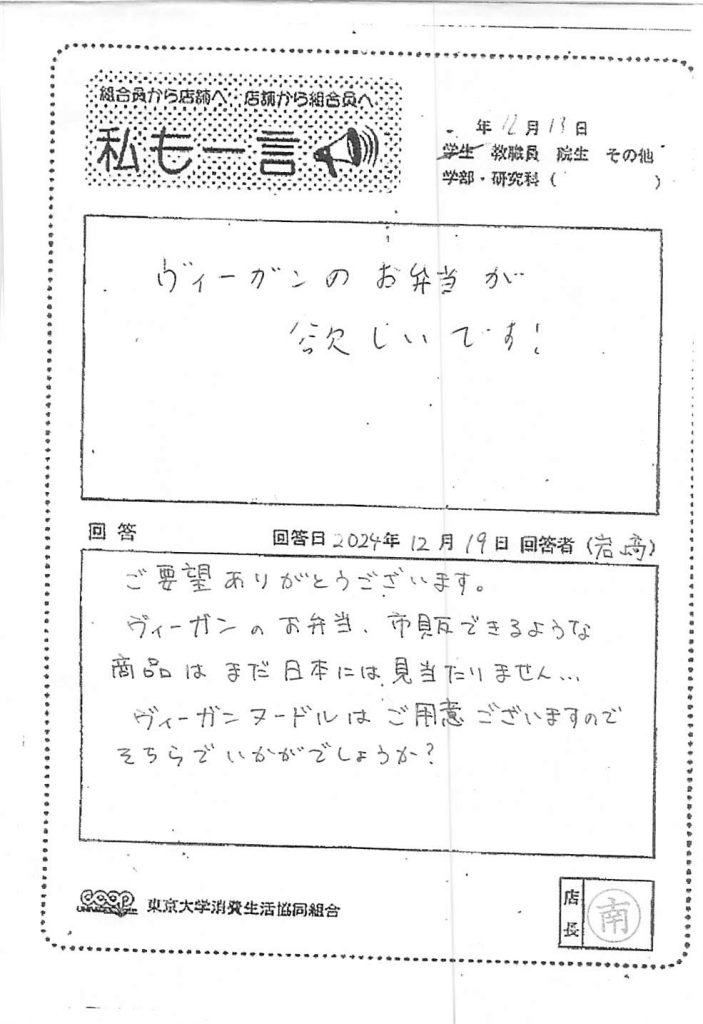 組合員から店舗へ 店舗から組合員へ
私も一言
年 12月 13日
学生 教職員 院生 その他
学部・研究科 ( )
ヴィーガンの お弁当が
欲しいです!
回答 回答日 2024年 12月 19日 回答者 (岩崎)
ご要望ありがとうございます。
ヴィーガンの お弁当、市販できるような
商品は まだ 日本には 見当たりません...
ヴィーガンヌードルは ご用意ございますので
そちらで いかがでしょうか?
coop 東京大学消費生活協同組合
店長 南